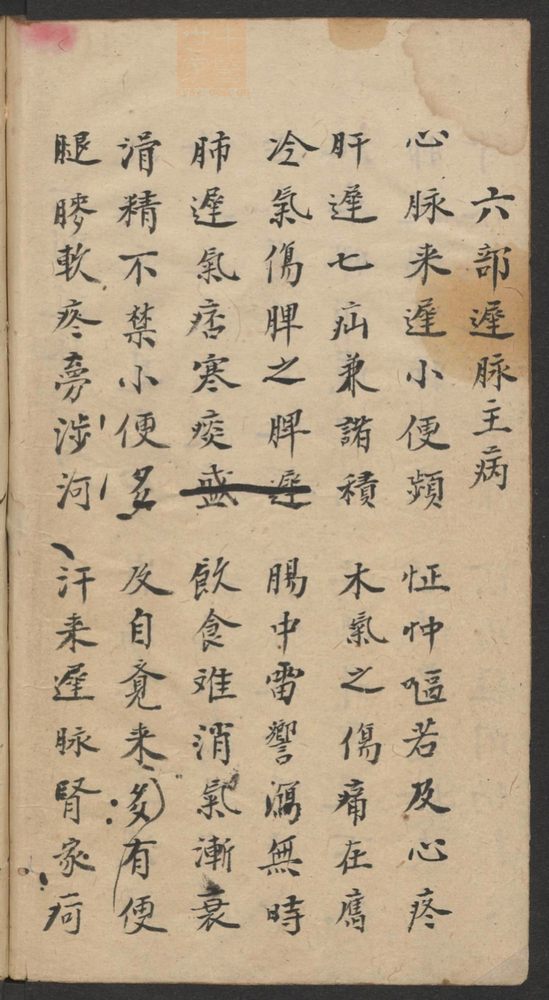 六部遲脉主病
心脉来遲小便頻 怔忡嘔若及心疼
肝遲七疝兼諸積 木氣之傷痛在鴈
冷氣傷脾之脾遲 腸中雷響瀉無時
肺遲氣痞寒痰盛 飲食难消氣漸衰
滑精不禁小便多 及自覔来多有便
腿膝軟疼旁涉河 汗来遲脉腎家疴